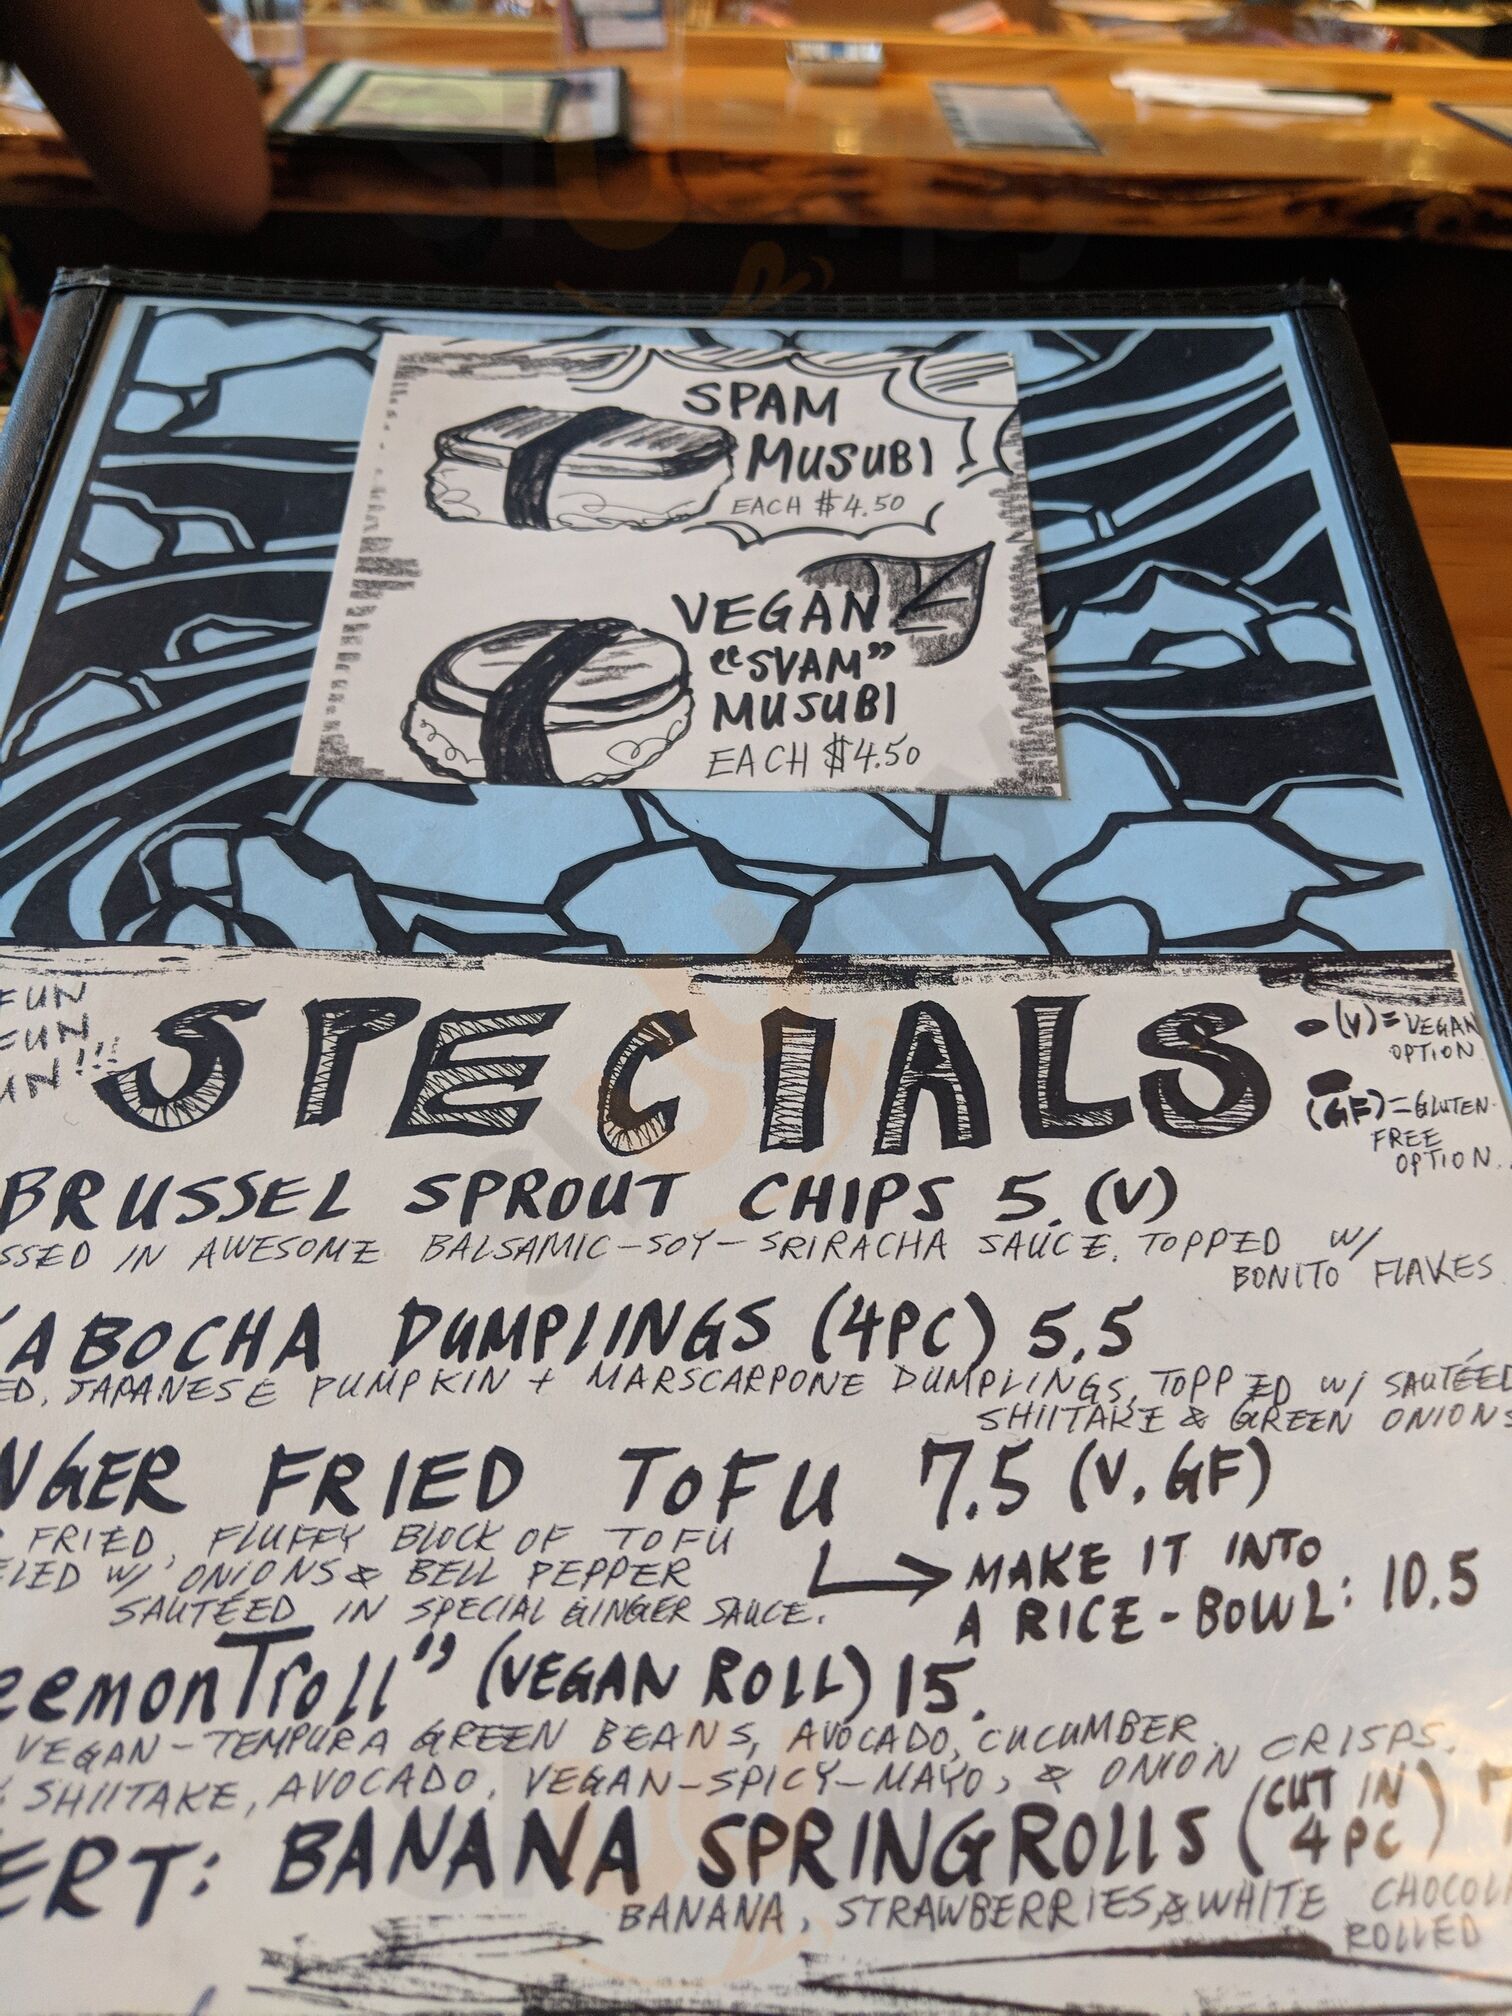 SPAM
MUSUBI
EACH $4.50
VEGAN
"SVAM"
MUSUBI
EACH $4.50
FUN
FUN
UN!!!
SPECIALS
(V) = VEGAN
OPTION
(GF) = GLUTEN-
FREE
OPTION.
BRUSSEL SPROUT CHIPS 5. (V)
SSED IN AWESOME BALSAMIC-SOY-SRIRACHA SAUCE. TOPPED W/
BONITO FLAKES
ABOCHA DUMPLINGS (4PC) 5.5
ED. JAPANESE PUMPKIN + MARSCARPONE DUMPLINGS, TOPPED W/ SAUTÉED
SHIITAKE & GREEN ONIONS
NGER FRIED TOFU 7.5 (V, GF)
FRIED, FLUFFY BLOCK OF TOFU
LED W/ ONIONS & BELL PEPPER
SAUTÉED IN SPECIAL GINGER SAUCE.
MAKE IT INTO
A RICE-BOWL: 10.5
eemonTroll" (VEGAN ROLL) 15.
VEGAN-TEMPURA GREEN BEANS, AVOCADO, CUCUMBER
SHIITAKE, AVOCADO, VEGAN-SPICY-MAYO, & ONION CRISPS.
ERT: BANANA SPRINGROLLS (CUT IN
4 PC)
BANANA, STRAWBERRIES, & WHITE CHOCOL
ROLLED